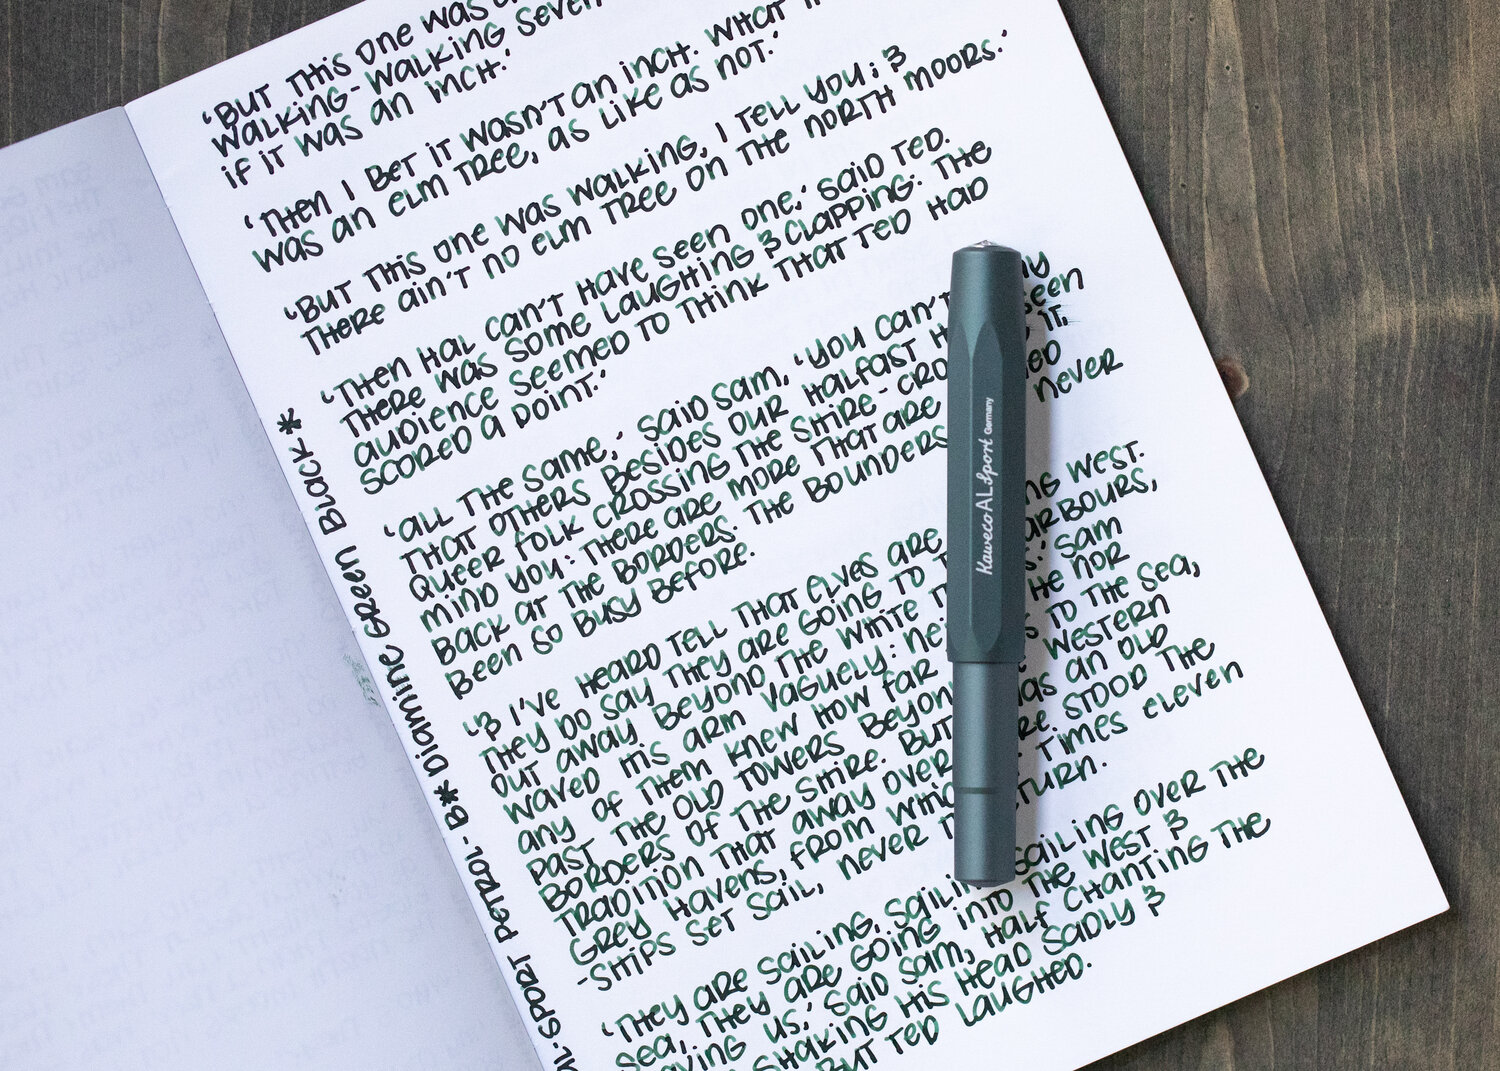 'BUT THIS ONE WAS
WALKING-WALKING SEVEN
IF IT WAS AN INCH.'
'THEN I BET IT WASN'T AN INCH. WHAT
WAS AN ELM TREE, AS LIKE AS NOT.'
'BUT THIS ONE WAS WALKING, I TELL YOU; &
THERE AIN'T NO ELM TREE ON THE NORTH MOORS.'
'THEN HAL CAN'T HAVE SEEN ONE,' SAID TED.
THERE WAS SOME LAUGHING & CLAPPING: THE
AUDIENCE SEEMED TO THINK THAT TED HAD
SCORED A POINT.'
'ALL THE SAME,' SAID SAM, 'YOU CAN'T
THAT OTHERS BESIDES OUR HALFAST SEEN
QUEER FOLK CROSSING THE SHIRE-CRO IT,
MIND YOU: THERE ARE MORE THAT ARE
BACK AT THE BORDERS. THE BOUNDERS NEVER
BEEN SO BUSY BEFORE.
'& I'VE HEARD TELL THAT ELVES ARE WEST.
THEY DO SAY THEY ARE GOING TO ARBOURS,
OUT AWAY BEYOND THE WHITE SAM
WAVED HIS ARM VAGUELY: NE HE NOR
ANY OF THEM KNEW HOW FAR TO THE SEA,
PAST THE OLD TOWERS BEYON WESTERN
BORDERS OF THE SHIRE. BUT AN OLD
TRADITION THAT AWAY OVER STOOD THE
GREY HAVENS, FROM WHIC TIMES ELEVEN
-SHIPS SET SAIL, NEVER TURN.
'THEY ARE SAILING, SAILIN SAILING OVER THE
SEA, THEY ARE GOING INTO THE WEST &
US,' SAID SAM, HALF CHANTING THE
SHAKING HIS HEAD SADLY &
BUT TED LAUGHED.
AL-SPORT PETROL-B*DIAMINE GREEN BLACK*
Kaweco AL Sport Germany